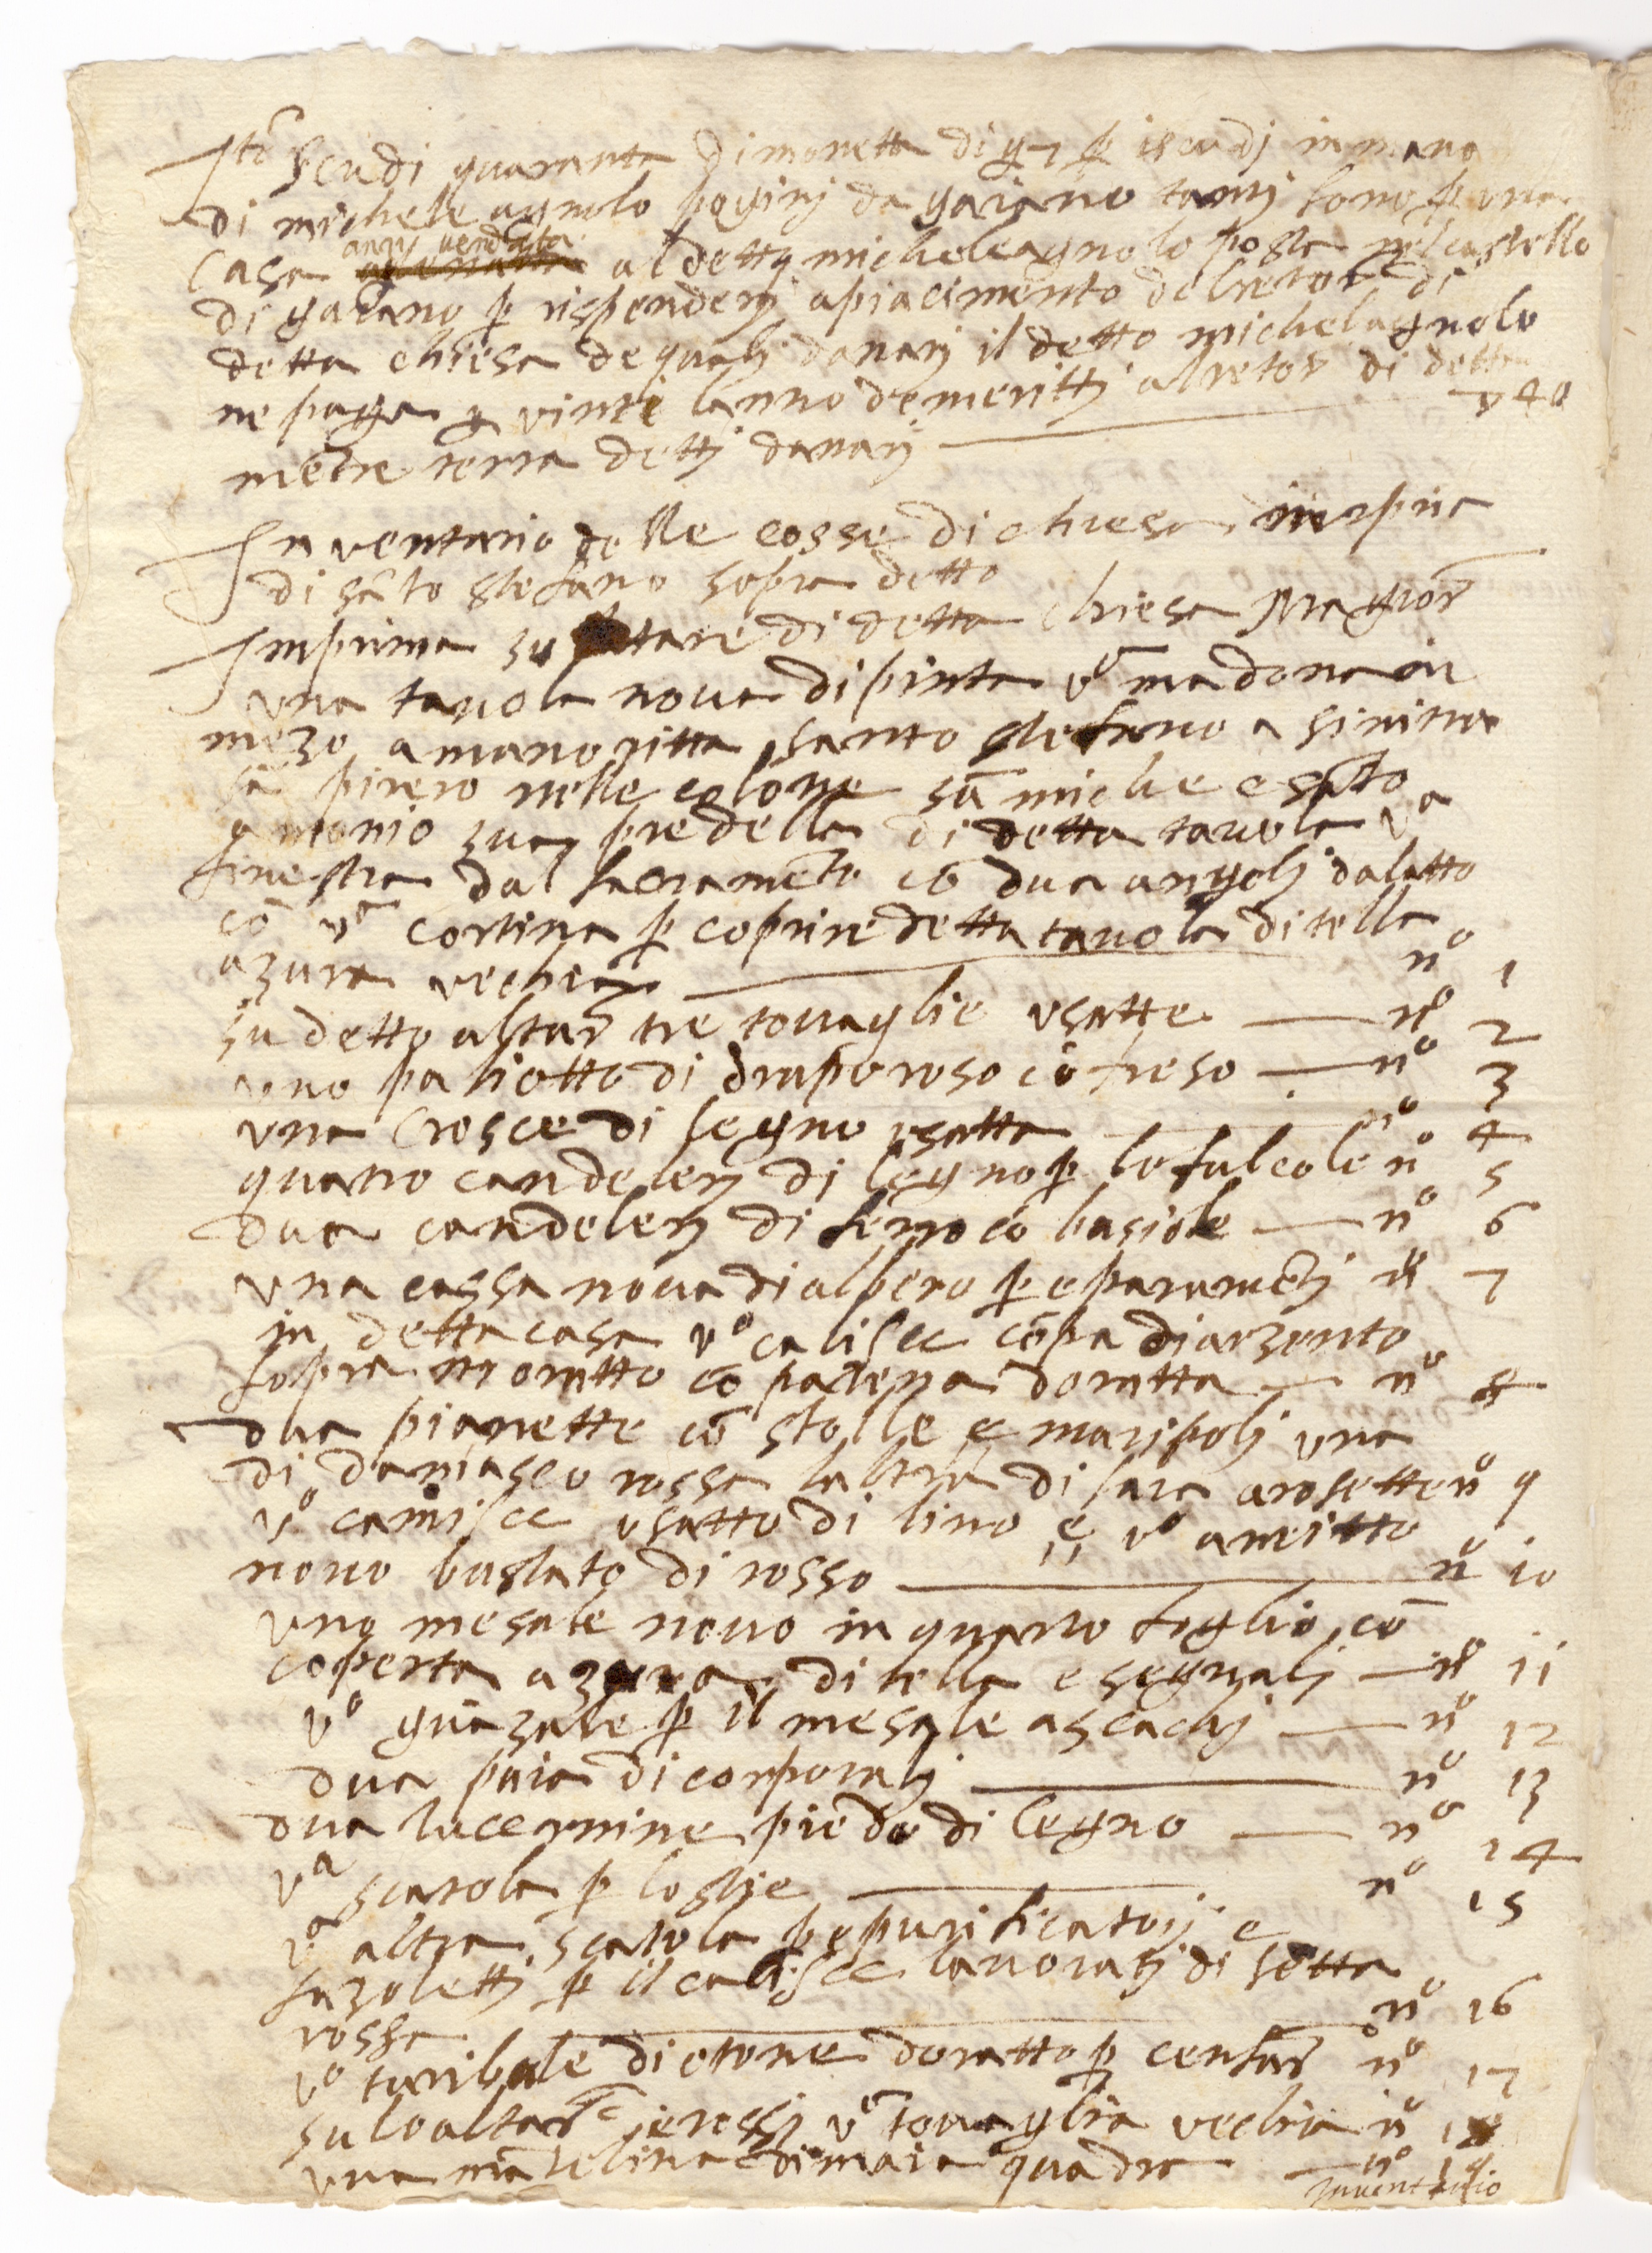 Itē scudi quaranta di monetta di ꝑ iscudj in mano
di michele agnolo poginj da gaiano tantj sono ꝑ una
casa anzj vendutta al detto micheleagnolo posta nel castello
di gaiano ꝑ rispenderj apiacimento del retor di
detta chiesa de qualj danarj il detto michelagnolo
ne paga vinti lanno de merittj al retor di detta
metre terra dettj danarj — 40
Inventario delle cosse di chiesa in apua
di sāto stefano sopra detto
Imprima su altare di detta chiesa magior
una tavola nova dipinta vª madona in
mezo a mano ritta santo stefano a sinitra
sā piero nelle colōne sā miche e sāto
antonio sua predella di detta tavola vª
finestra dal sacramēto cō dua angolj dalatto
cō vª cortina ꝑ coprire detta tavola di tella
azura vechia — nº 1
su detto altar tre tovaglie usatte — nº 2
uno paliotto di drapo roso cō freso — nº 3
una crosce di legno usatta — nº 4
quatro candelerj di legno ꝑ le falcole nº 5
dua candelerj di ferro cō basiole — nº 6
una cassa nova di albero ꝑ e paramētj nº 7
in detta casa vº calisce cōpa di arzento
sopra doratto cō patena doratta — nº 8
dua pianette cō stolle e manipolj una
di damasco rossa laltra di saia a rosette nº 9
vº camisce usatto di lino e vº amitto
novo bustato di rosso — nº 10
uno mesale novo in quarto foglio cō
coperta azura di tella e segnalj — nº 11
vº guāzale ꝑ il mesale a scachj — nº 12
dua paia di corporalj — nº 13
dua lucernine piede di legno — nº 14
vª scatola ꝑ lostie — nº 15
vª altra scatola ꝑ e purificatorj e
fazolettj ꝑ il calisce lavoratj di setta
rossa — nº 16
vº turibale di otone doratto ꝑ censar nº 17
su lo altar vª tovaglia vechia nº 18
una mātelina di maia quadra — nº 19
Inventario